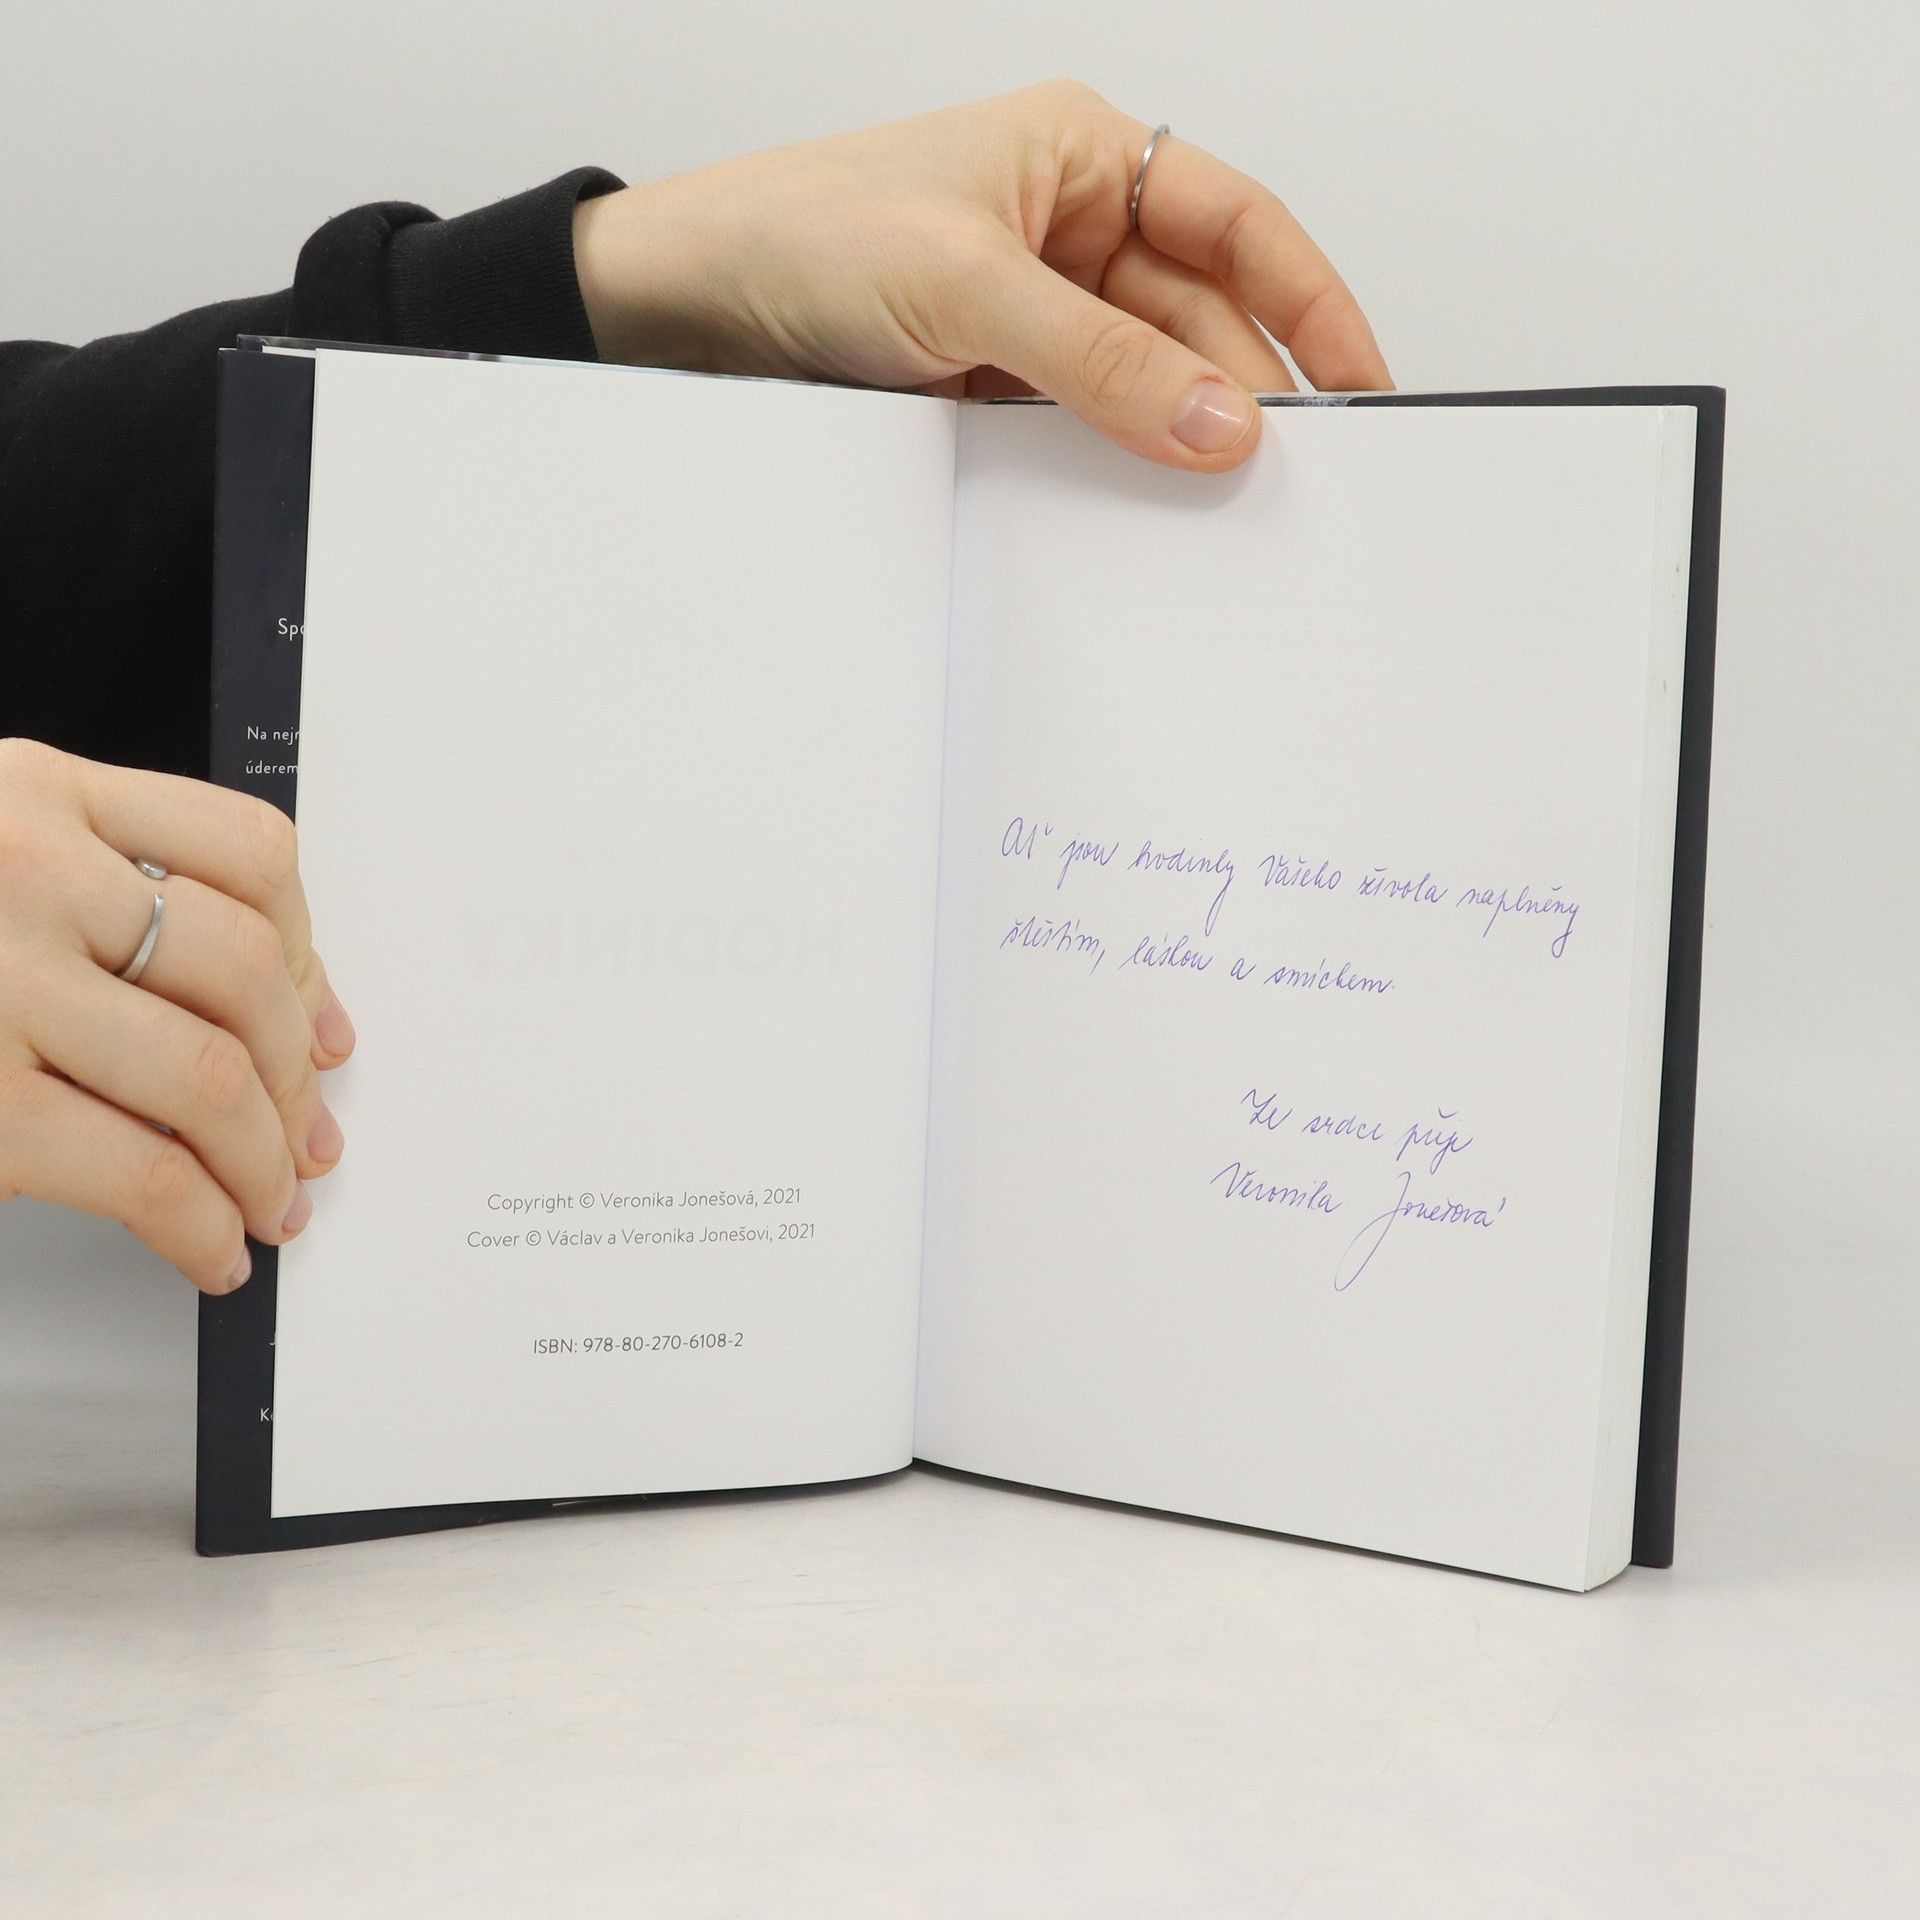 Spo
Na nejr
úderem
Copyright © Veronika Jonešová, 2021
Cover © Václav a Veronika Jonešovi, 2021
ISBN: 978-80-270-6108-2
Ať jsou hodinky Vašeho života naplněny
štěstím, láskou a smíchem.
Ze srdce přeje
Veronika Jonešová